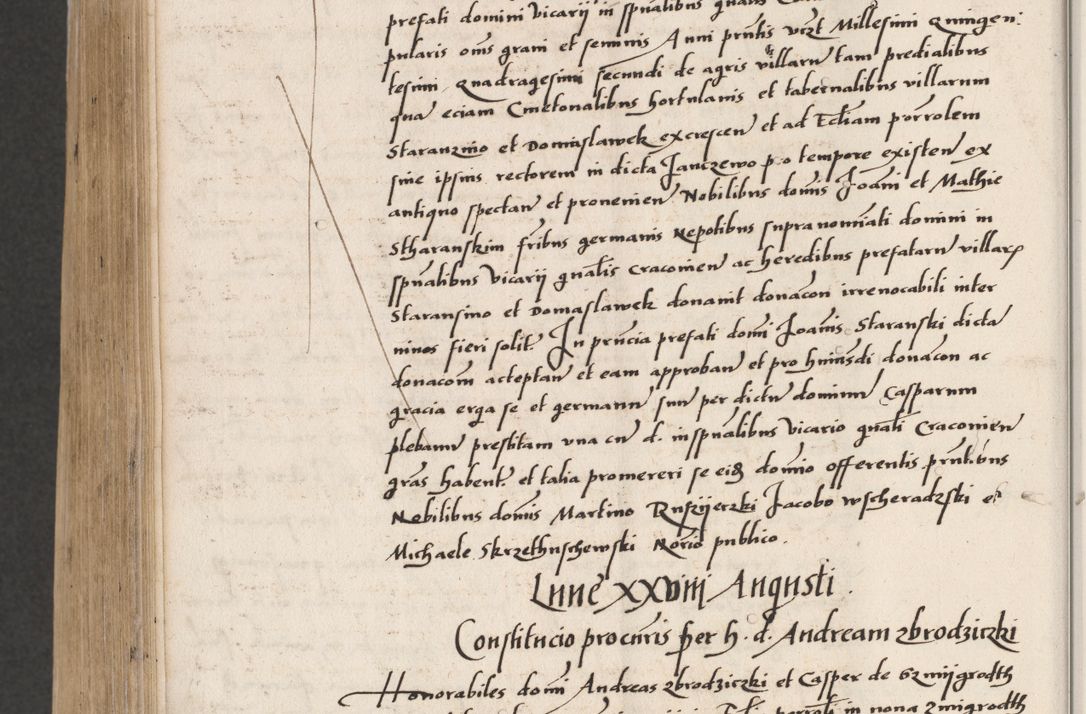 prefati domini vicarii in spualibus
pularis oms grani et seminis Anni prntis vczt Millesimi quingen
tesimi quadragesimi secundi de agris villaru tam predialibus
qua eciam Cmetonalibus hortulanis et tabernalibus villarum
Staranzino et Domaslawek excrescen et ad Ecliam porrolem
sine ipsius rectorem in dicta Janczewo p o tempore existen ex
antiquo spectan et provenien Nobilibus domis Joani et Mathie
Stharanskim fribus germanis Nepotibus supranomiati domini in
spualibus vicarii gnalis Cracovien ac heredibus prefataru villar
Staransino et Domaslawek donavit donacon irrevocabili inter
vivos fieri solit In prncia prefati domi Joanis Staranski dicta
donacom acceptan et eam approban et pro humsdi donacon ac
gracia erga se et germanu suu per dictu dominu Casparum
plebanu prestitam vna cu d. in spualibus vicario gnali Cracovien
gras habent et talia promereri se eid domio offerentis prntibus
Nobilibus domis Martino Ruszyeczki Jacobo wscheradzski et
Michaele Skrzethuschewski Norio publico.
Lune XXVIII Augusti.
Constitucio procuris per h. d. Andream zbrodziczki
Honorabiles domi Andreas zbrodziczki et Casper de Gzmijgrodth
in nova zmigrodth